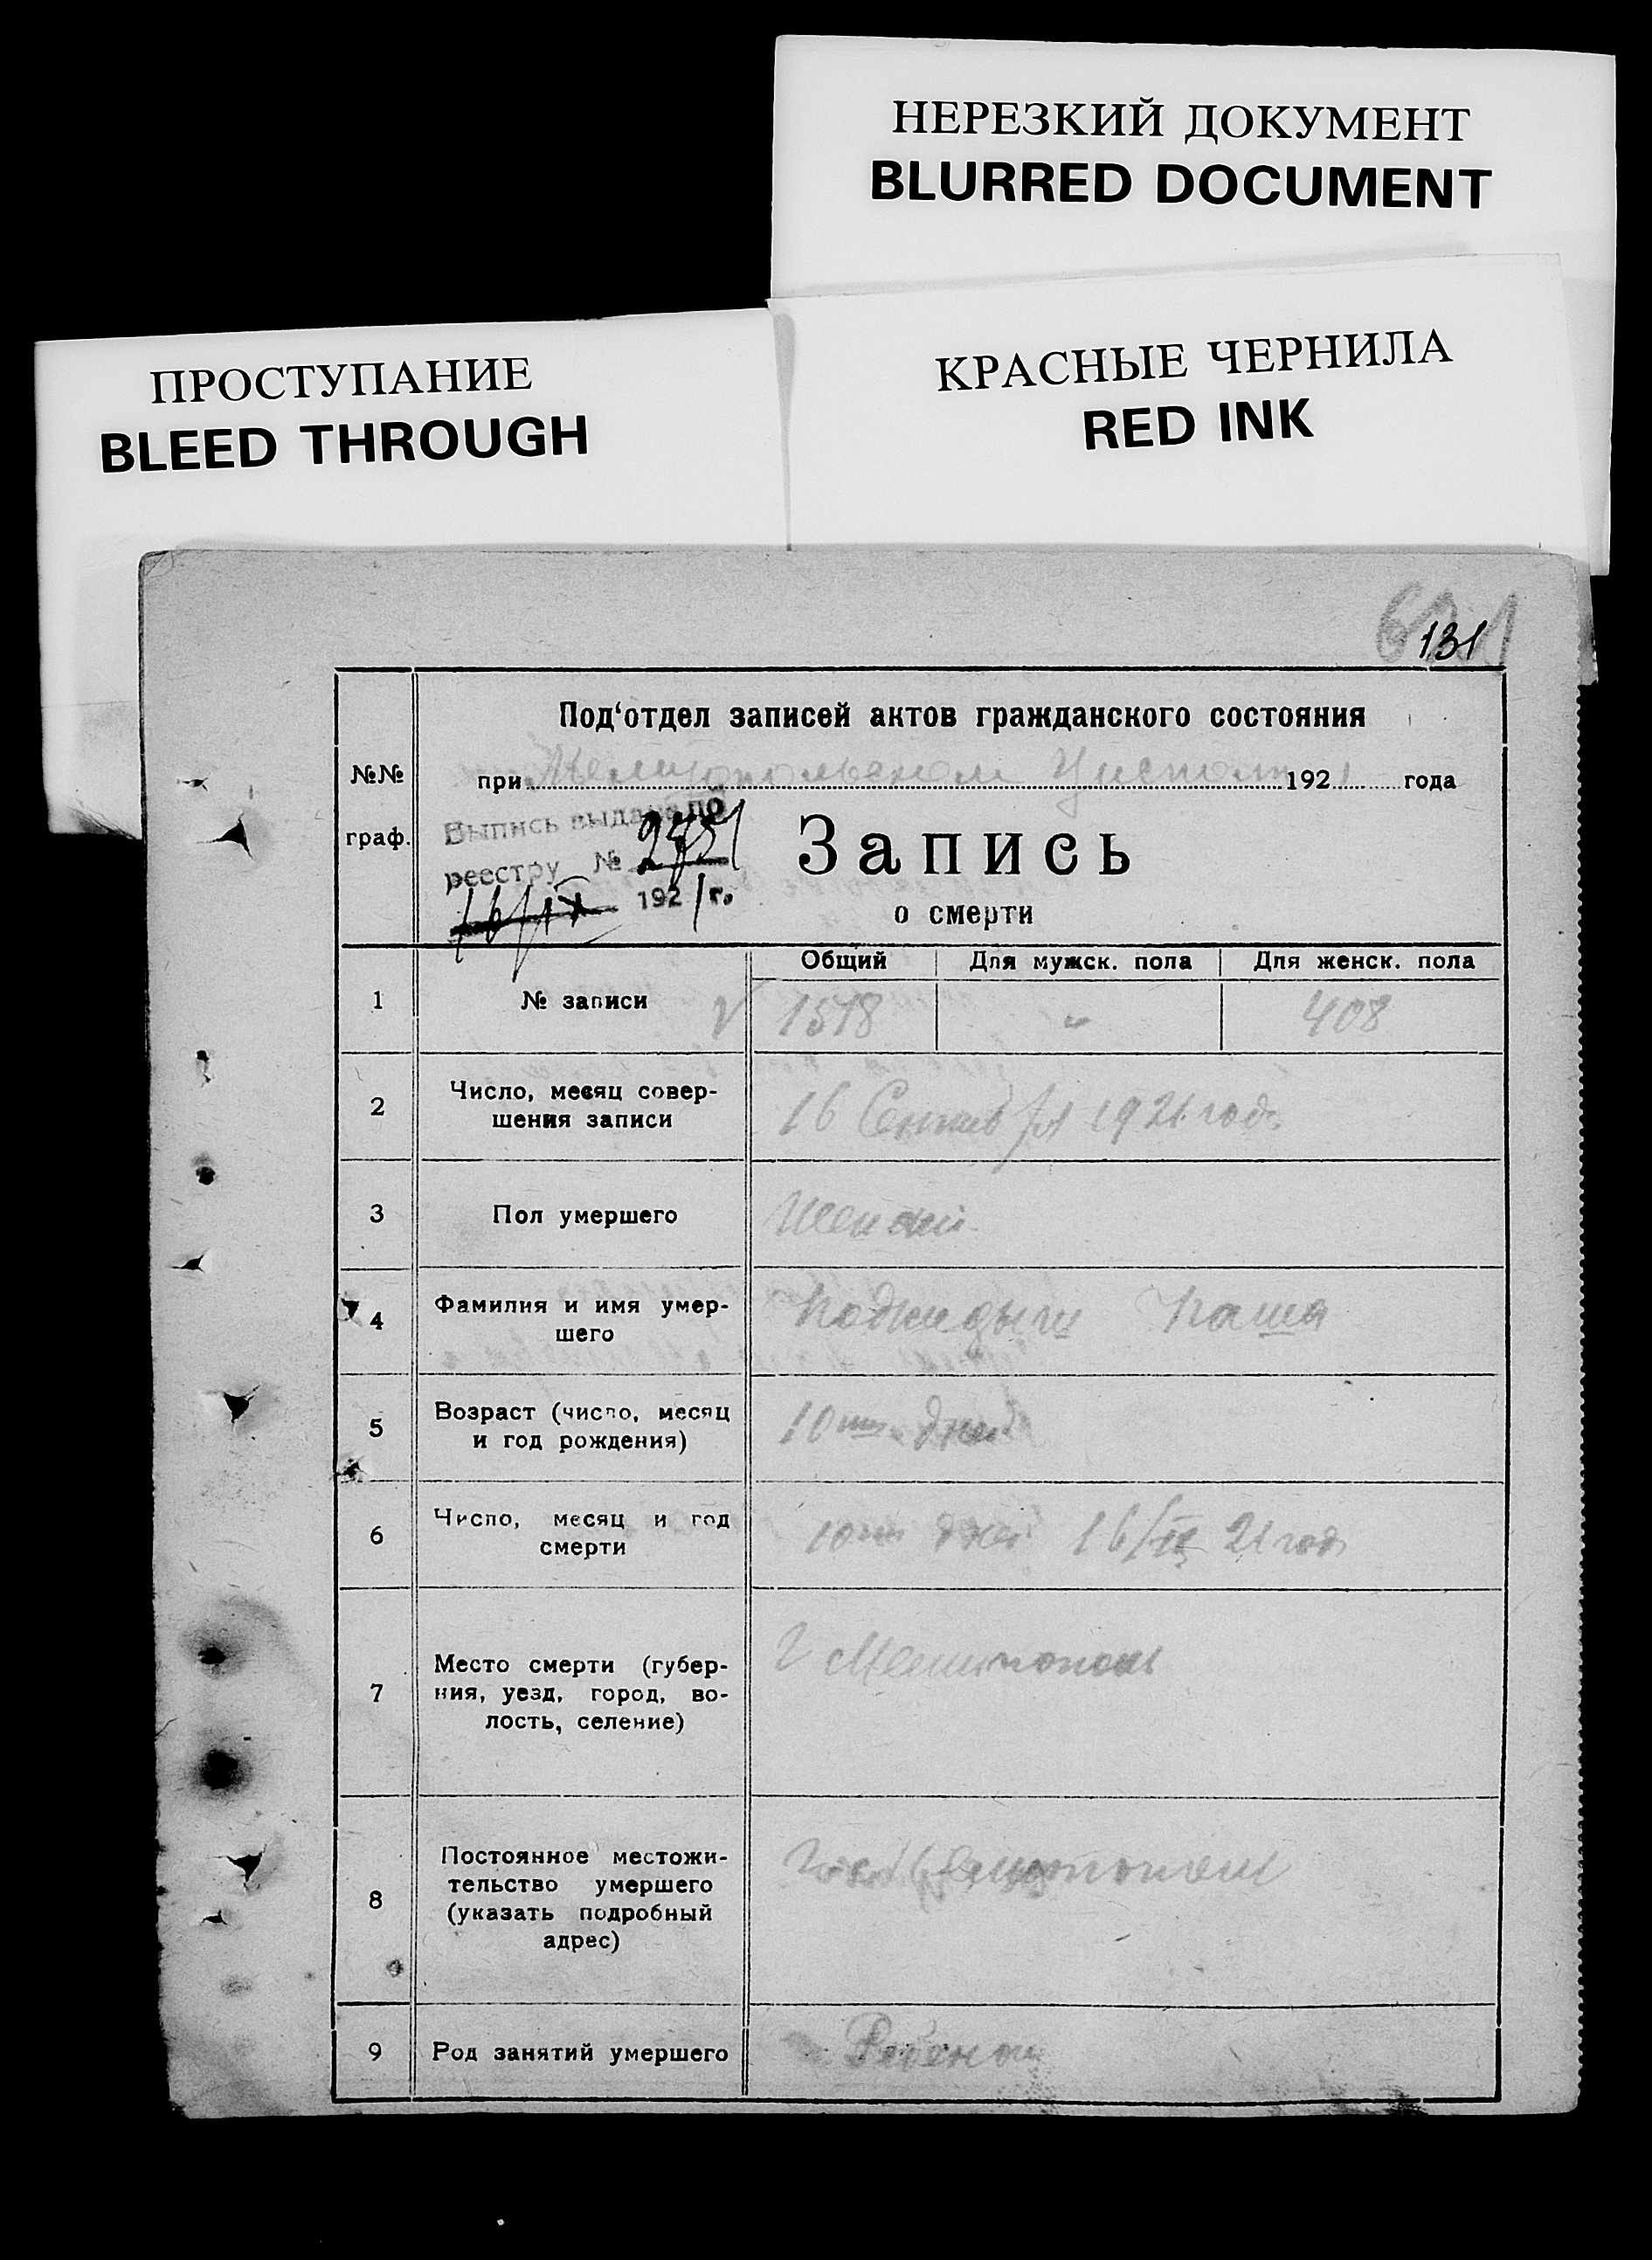 НЕРЕЗКИЙ ДОКУМЕНТ
BLURRED DOCUMENT
ПРОСТУПАНИЕ
BLEED THROUGH
КРАСНЫЕ ЧЕРНИЛА
RED INK
131
Под‘отдел записей актов гражданского состояния
№№
граф.
при Мелитопольском 1921 года
Выпись выдана по
реестру №
16/IX 1921 г.
Запись
о смерти
Общий Для мужск. пола Для женск. пола
1 № записи V 1518 " 408
2 Число, месяц совер-
шения записи
16 Сентября 1921 года
3 Пол умершего Женский
4 Фамилия и имя умер-
шего
Подкидыш Паша
5 Возраст (число, месяц
и год рождения)
10ти дней
6 Число, месяц и год
смерти
10ти дней 16/IX 21 года
7 Место смерти (губер-
ния, уезд, город, во-
лость, селение)
г Мелитополь
8 Постоянное местожи-
тельство умершего
(указать подробный
адрес)
Мелитополь
9 Род занятий умершего Ребенок